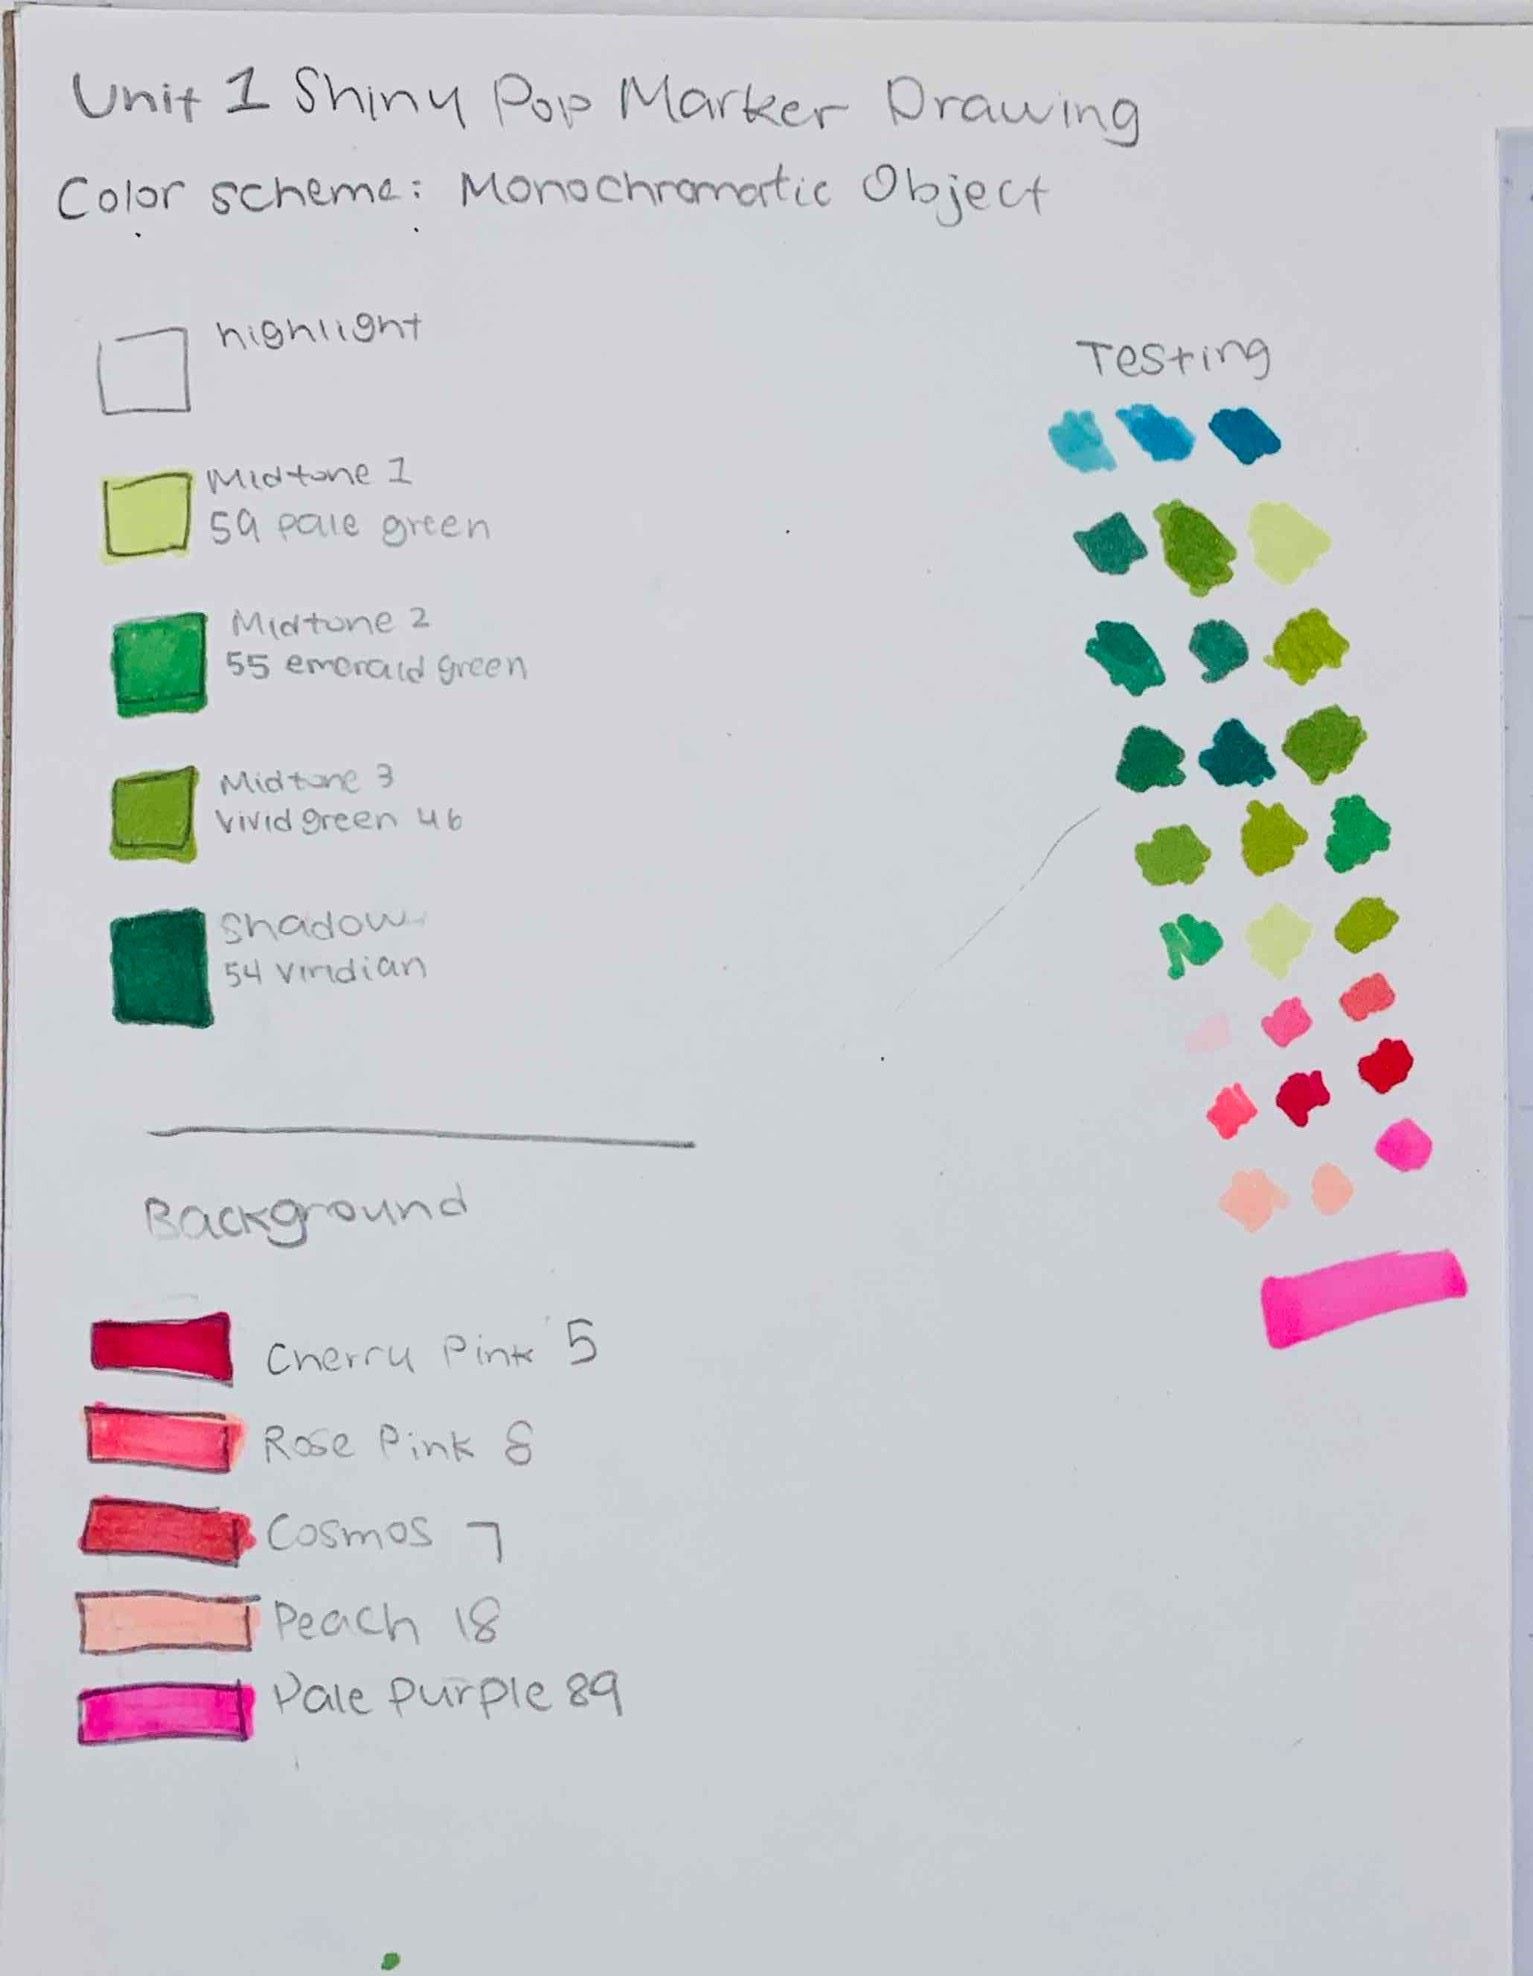 Unit 1 Shiny Pop Marker Drawing
Color scheme: Monochromatic Object
highlight
Midtone 1
59 pale green
Midtone 2
55 emerald green
Midtone 3
Vivid green 46
Shadow
54 Viridian
Testing
Background
Cherry Pink 5
Rose Pink 8
Cosmos 7
Peach 18
Pale Purple 89